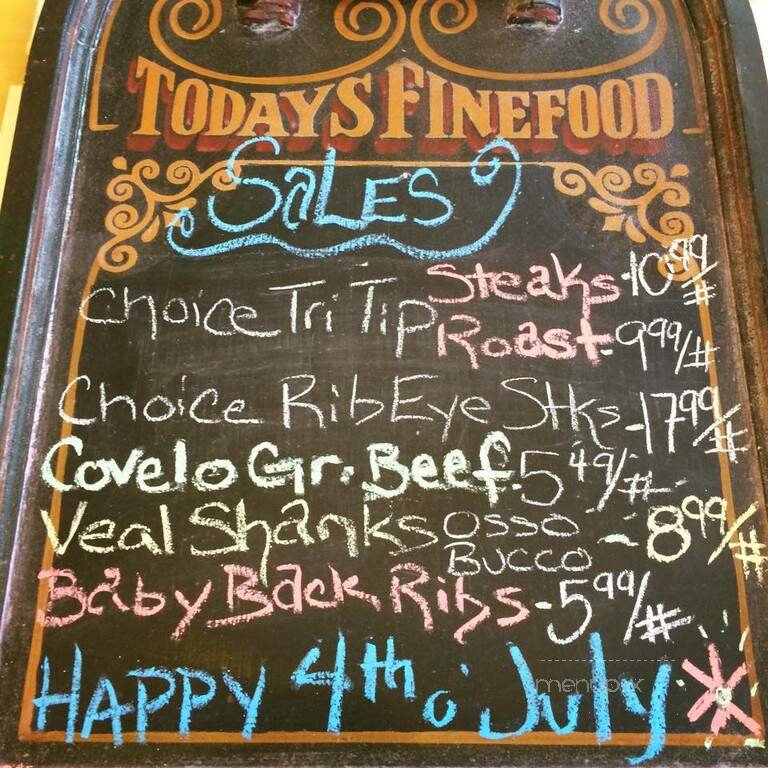 TODAYS FINE FOOD
SaLES
Choice Tri Tip Steaks-10.99/#
Roast-9.99/#
Choice RibEye Stks-17.99/#
Covelo Gr. Beef.5 49/#
Veal Shanks OSSO BUCCO - 8 99/#
Baby Back Ribs-5 99/#
HAPPY 4th o' July
menupix